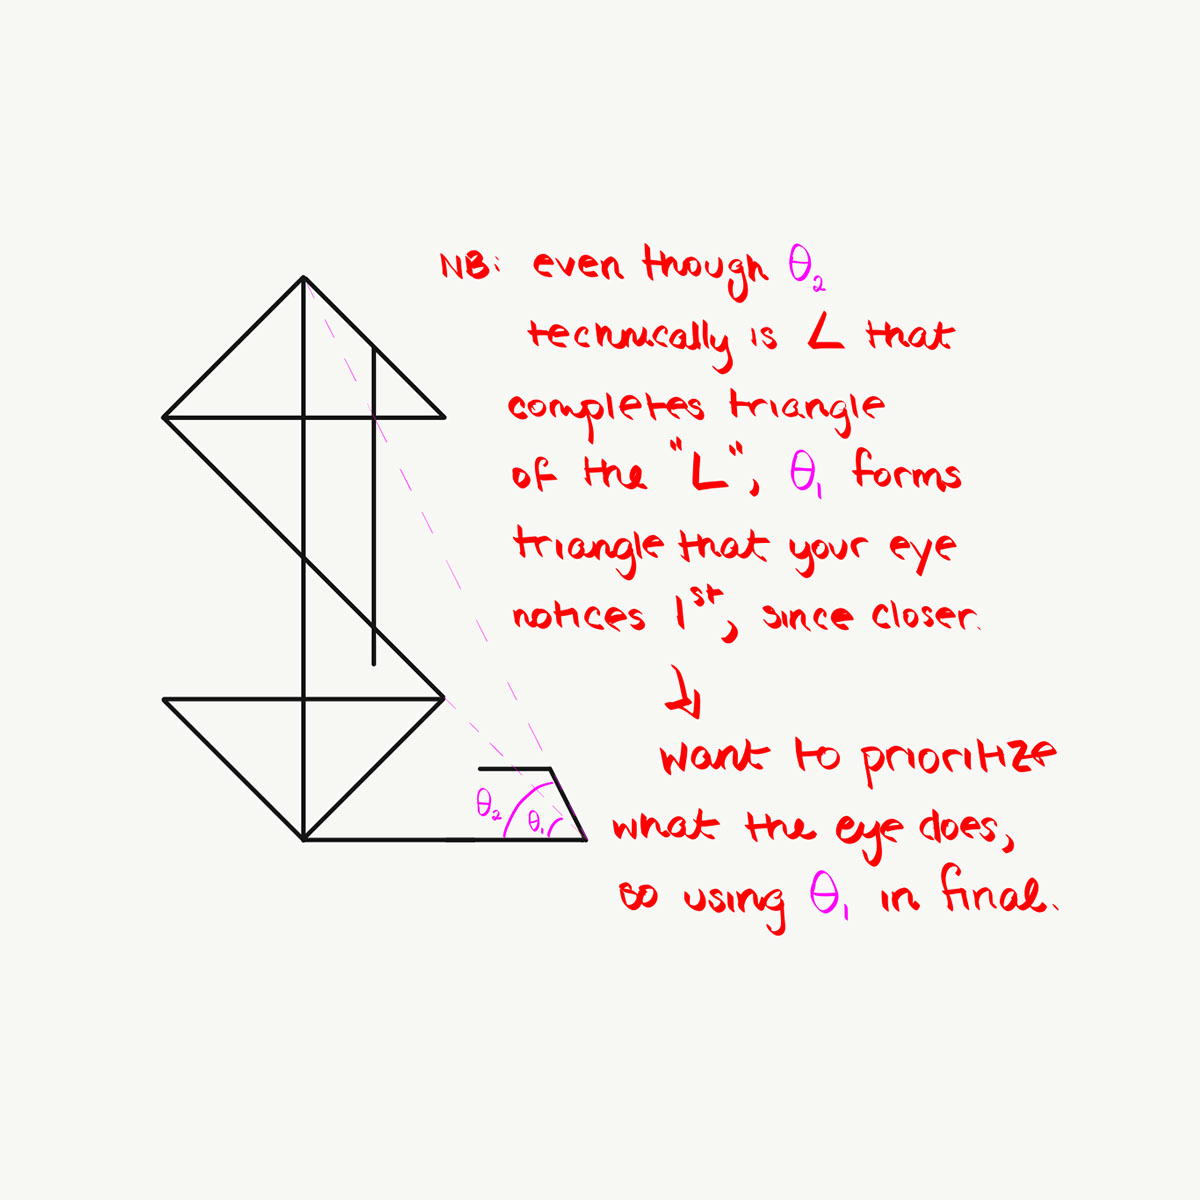 NB: even though θ₂
technically is ∠ that
completes triangle
of the "L", θ₁ forms
triangle that your eye
notices 1st, since closer.
want to prioritize
θ₂
θ₁
what the eye does,
so using θ₁ in final.